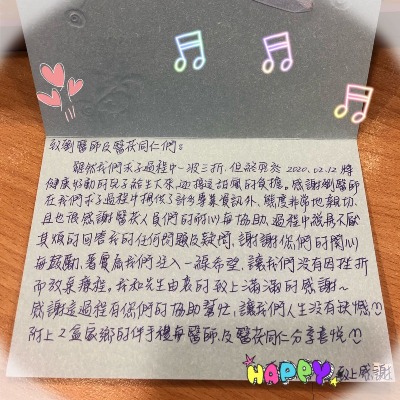 致劉醫師及醫護同仁們：
雖然我們求子過程中一波三折，但終究於2020.02.12將
健康好動的兒子給生下來，迎接這甜蜜的負擔。感謝劉醫師
在我們求子過程中提供了許多專業資訊外，態度非常地親切，
且也很感謝醫護人員們的耐心與協助，過程中總是不厭
其煩的回覆我的任何問題及疑問，謝謝你們的關心
與鼓勵，著實為我們注入一線希望，讓我們沒有因挫折
而放棄療程。我和先生由衷的致上滿滿的感謝～
感謝這過程有你們的協助幫忙，讓我們人生沒有缺憾
附上2盒家鄉的伴手禮與醫師及醫護同仁分享喜悅
HAPPY 致上感謝